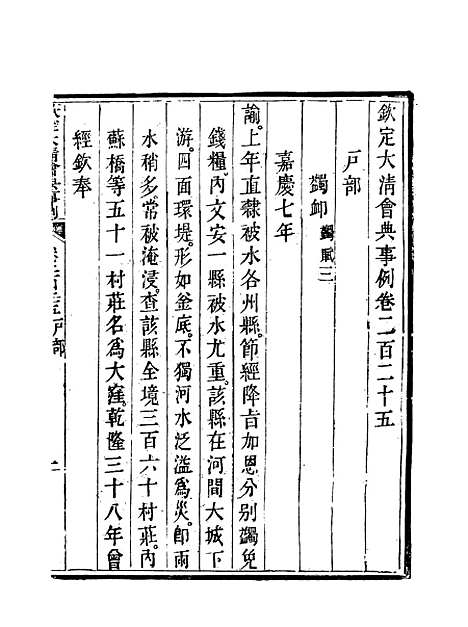 欽定大清會典事例卷二百二十五
戶部
蠲卹蠲賦三
嘉慶七年
諭。上年直隸被水各州縣。節經降旨加恩分別蠲免
錢糧。內文安一縣被水尤重。該縣在河間大城下
游。四面環堤。形如釜底。不獨河水泛溢為災。即雨
水稍多。常被淹浸。查該縣全境三百六十村莊。內
蘇橋等五十一村莊名為大窪。乾隆三十八年曾
經欽奉